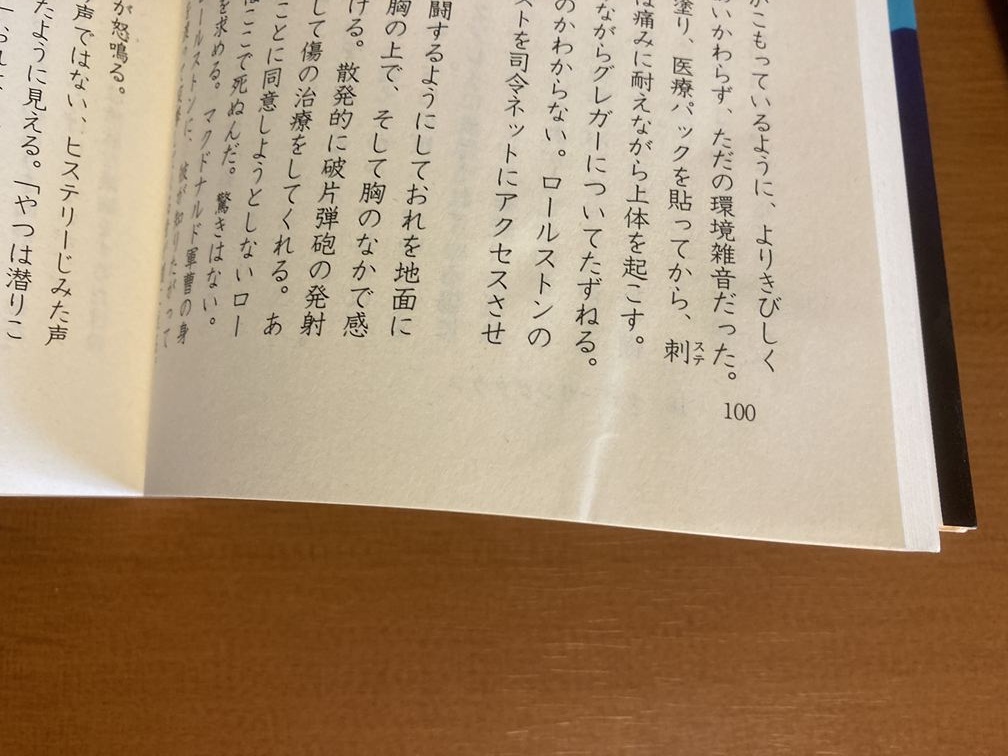 こもっているように、よりきびしく
いかわらず、ただの環境雑音だった。
塗り、医療パックを貼ってから、刺
ステ
は痛みに耐えながら上体を起こす。
ながらグレガーについてたずねる。
のかわからない。ロールストンの
ストを司令ネットにアクセスさせ
闘するようにしておれを地面に
胸の上で、そして胸のなかで感
ける。散発的に破片弾砲の発射
して傷の治療をしてくれる。あ
ことに同意しようとしないロー
はここで死ぬんだ。驚きはない。
を求める。マクドナルド軍曹の身
ールストンに、彼が知りたがって
が怒鳴る。
声ではない、ヒステリーじみた声
たように見える。「やつは潜りこ
100